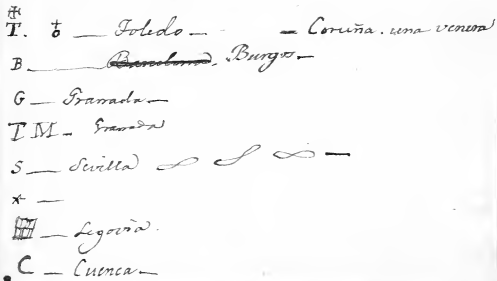 T. — Toledo — — Coruña. una venera
B — Barcelona. Burgos —
G — Granada —
T M — Granada
S — Sevilla
Segovia.
C — Cuenca —